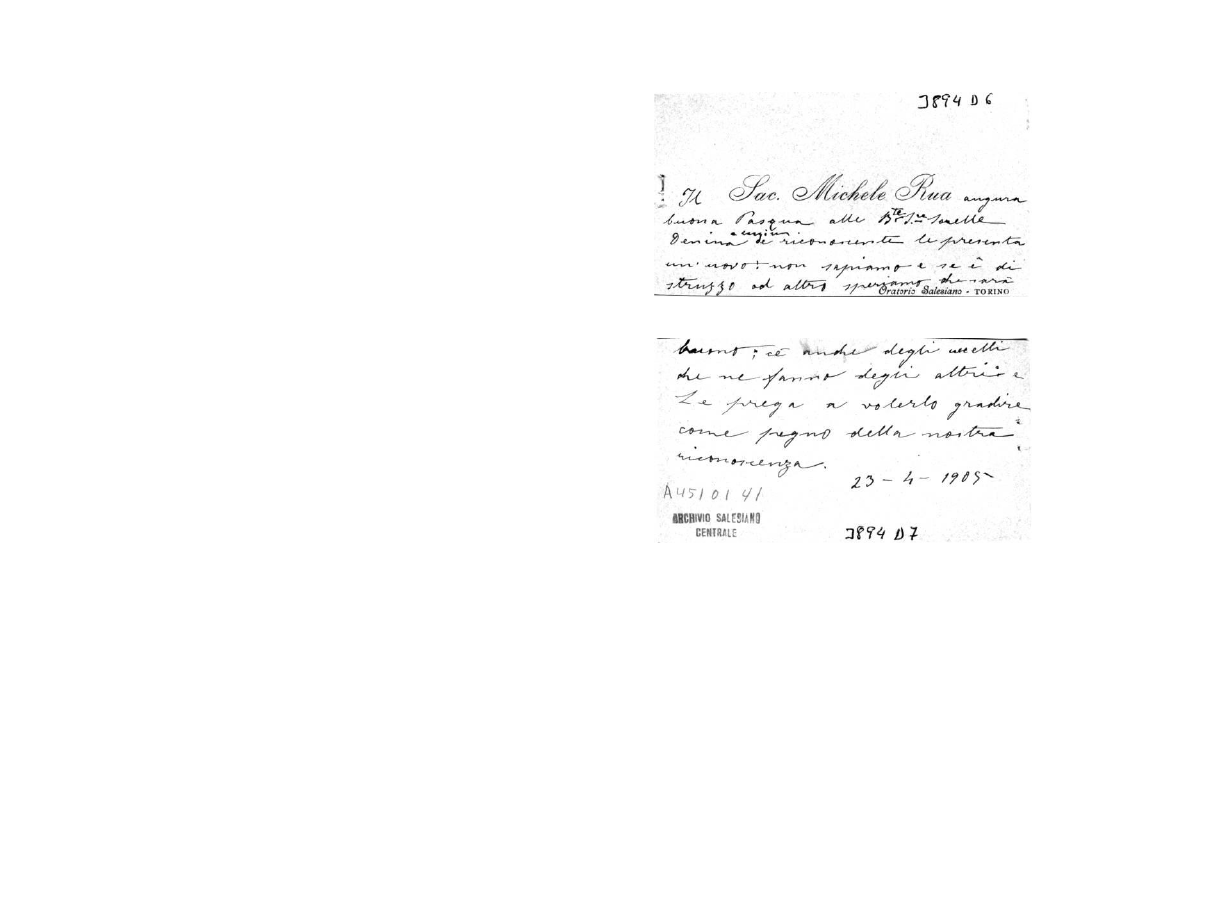 J894 D 6
Il Sac. Michele Rua augura
buona Pasqua alle B.te S.re Sorelle
Denina e riconoscente le presenta
un' uovo: non sapiamo e se è di
struzzo od altro speriamo che sarà
Oratorio Salesiano - TORINO
buono; cè anche degli uccelli
che ne fanno degli altri e
Le prega a volerlo gradire
come pegno della nostra
riconoscenza.
23 - 4 - 1905
A4510141
ARCHIVIO SALESIANO
CENTRALE
J894 D 7